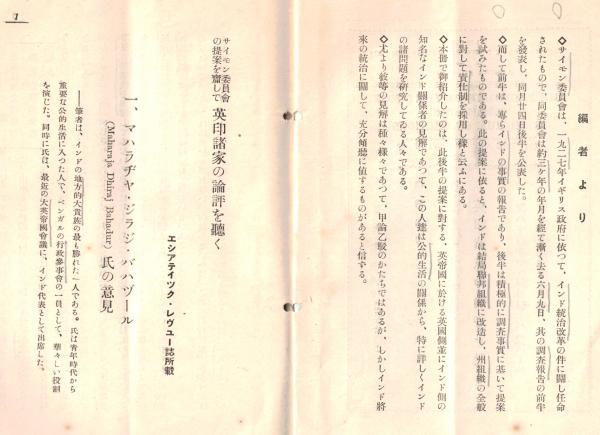 編者より
◇サイモン委員會は、一九二七年イギリス政府に依つて、インド統治改革の件に關し任命
されたもので、同委員會は約三ケ年の年月を經て漸く去る六月九日、其の調査報告の前半
を發表し、同月廿四日後半を公表した。
◇而して前半は、專らインドの事實の報告であり、後半は積極的に調査事實に基いて提案
を試みたものである。此の提案に依ると、インドは結局聯邦組織に改造し、州組織の全般
に對して責任制を採用し樣と云ふにある。
◇本冊で御紹介したのは、此後半の提案に對する、英帝國に於ける英國側並にインド側の
知名なインド關係者の見解であつて、この人達は公的生活の關係から、特に詳しくインド
の諸問題を研究してゐる人々である。
◇尤より彼等の見解は種々樣々であつて、甲論乙駁のかたちではあるが、しかしインド將
來の統治に關して、充分傾聽に値するものがあると信ずる。
サイモン委員會
の提案を齎して
英印諸家の論評を聽く
エシアテイツク・レヴユー誌所載
一、マハラヂヤ・ジラジ・バハヅール
(Maharaja Dhiraj Bahadur)
氏の意見
――筆者は、インドの地方的大貴族の最も勝れた一人である。氏は青年時代から
重要な公的生活に入つた人で、ベンガルの行政參事會の一員として、華々しい役割
を演じた。同時に氏は、最近の大英帝國會議に、インド代表として出席した。
1